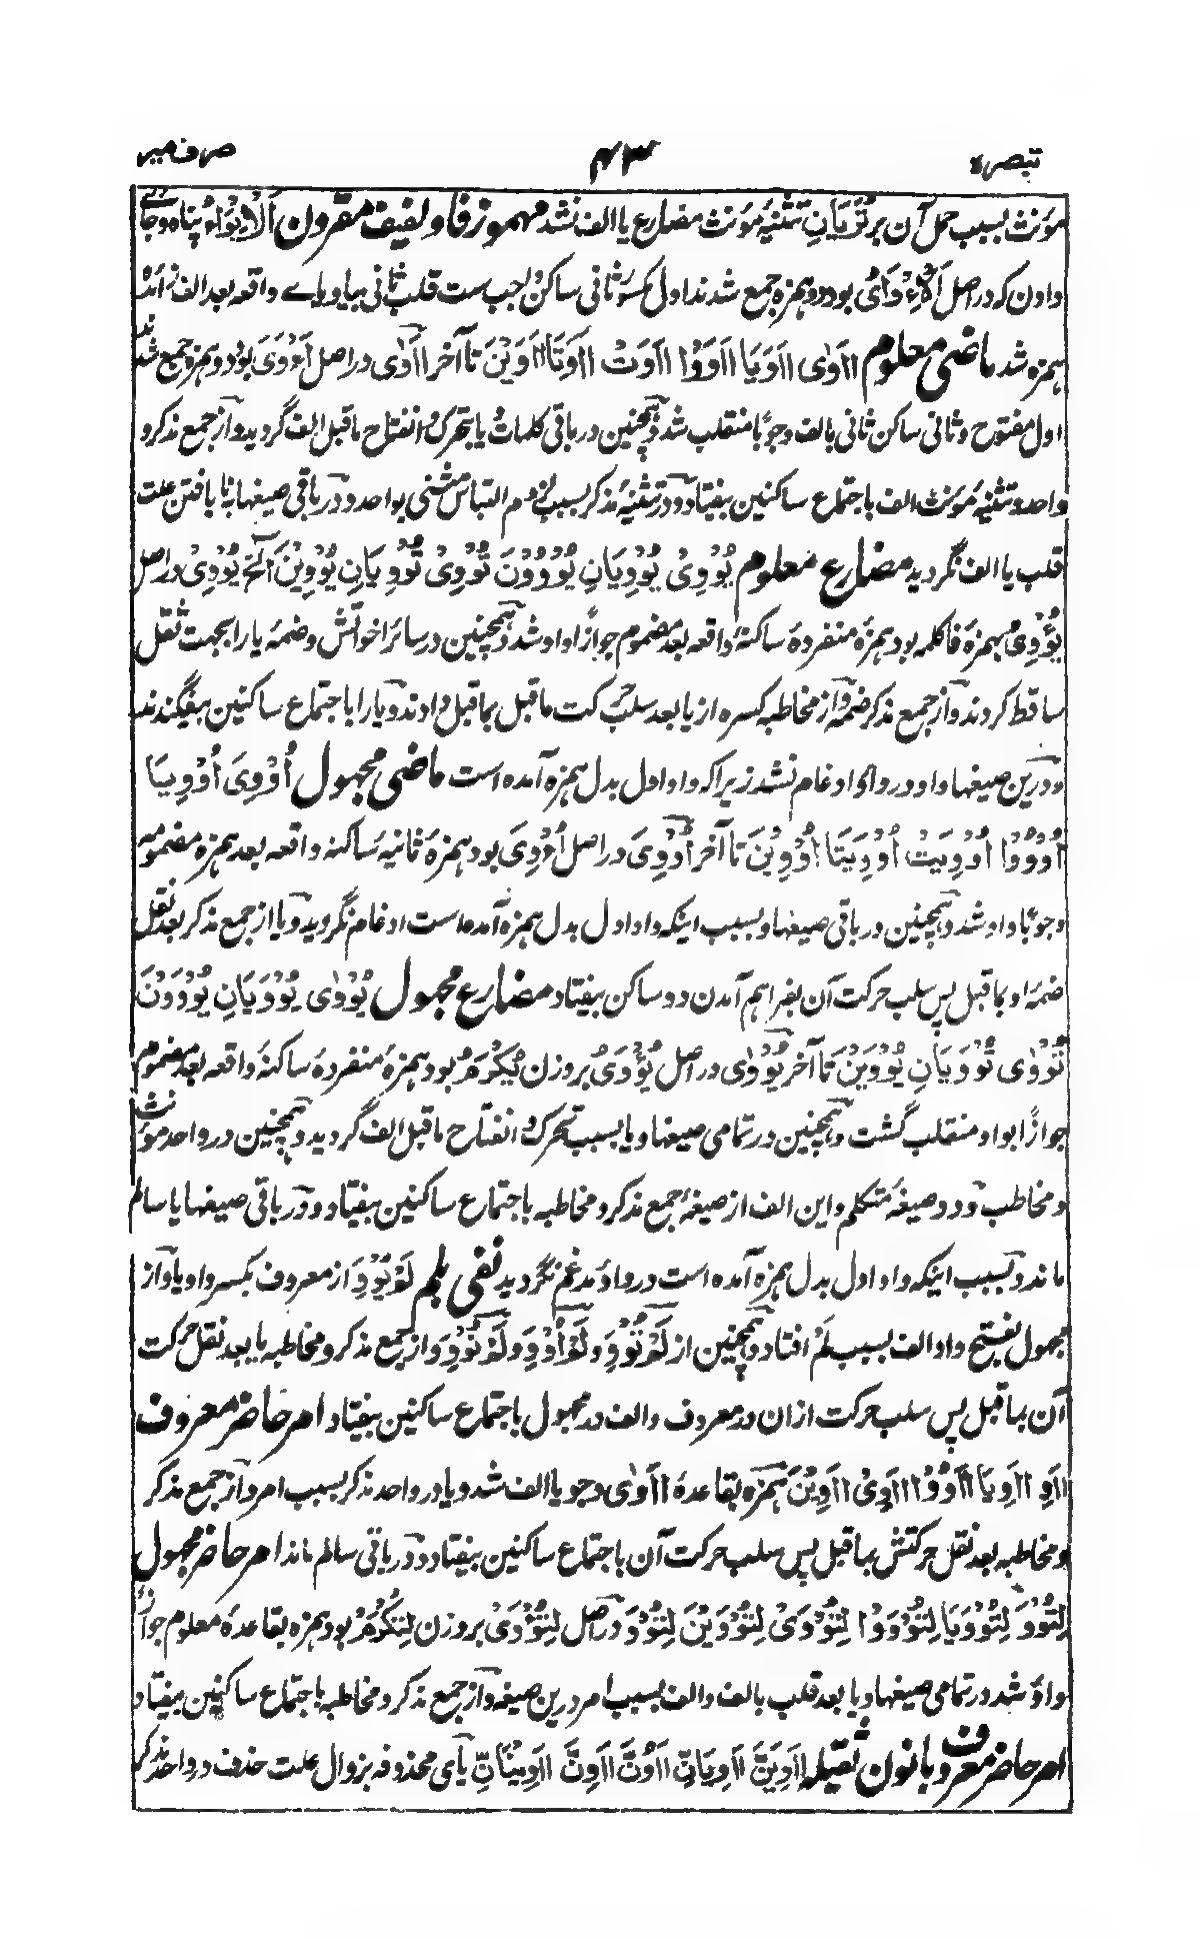 تبصرہ ۴۳ صرف میر
مؤنث بسبب حمل آن بر تُرَيَانِ تثنیۂ مؤنث مضارع یا الف نشد مہموز فا و لفیف مقرون اَلْاِيْوَاءُ پناہ و جاے
دادن کہ در اصل اَلْاِءْوَاىُ بود دو ہمزہ جمع شدند اول مکسور ثانی ساکن لجب ست قلب ثانی بیا و یاے واقعہ بعد الف زائدہ
ہمزہ شد ماضی معلوم ااَوٰى ااَوَيَا ااَوَوْا ااَوَتْ ااَوَتَا ااَوَيْنَ تا آخر ااَوٰى در اصل اَءْوَىَ بود دو ہمزہ جمع شدند
اول مفتوح و ثانی ساکن ثانی بالف وجوبًا منقلب شد و ہمچنین در باقی کلمات و یا بتحرک و انفتاح ماقبل الف گردید و از جمع مذکر و
واحد و تثنیۂ مؤنث الف باجتماع ساکنین بیفتاد و در تثنیۂ مذکر بسبب لزوم التباس مثنی بواحد و در باقی صیغہا بنا یافتن علت
قلب یا الف نگردید مضارع معلوم يُوْوِىْ يُوْوِيَانِ يُوْوُوْنَ تُوْوِىْ تُوْوِيَانِ يُوْوِيْنَ الخ يُوْوِىْ در اصل
يُؤْوِىُ مہمزۂ فا کلمہ بود ہمزہ منفردہ ساکنۂ واقعہ بعد مضموم جوازًا واو شد و ہمچنین در سائر اخواتش و ضمۂ یا را بجہت ثقل
ساقط کردند و از جمع مذکر ضمہ و از مخاطبہ کسرہ از یا بعد سلب حرکت ماقبل بماقبل دادند و یا را باجتماع ساکنین بیفگندند
و درین صیغہا واو در واو ادغام نشد زیرا کہ واو اول بدل ہمزہ آمدہ است ماضی مجہول اُوْوِىَ اُوْوِيَا
اُوْوُوْا اُوْوِيَتْ اُوْوِيَتَا اُوْوِيْنَ تا آخر اُوْوِىَ در اصل اُءْوِىَ بود ہمزۂ ثانیہ ساکنہ واقعہ بعد ہمزہ مضمومہ
وجوبًا واو شد و ہمچنین در باقی صیغہا و بسبب اینکہ واو اول بدل ہمزہ آمدہ است ادغام نگردید و یا از جمع مذکر بعد نقل
ضمہ او بماقبل پس سلب حرکت آن بفراہم آمدن دو ساکن بیفتاد مضارع مجہول يُوْوٰى يُوْوَيَانِ يُوْوَوْنَ
تُوْوٰى تُوْوَيَانِ يُوْوَيْنَ تا آخر يُوْوٰى در اصل يُؤْوَىُ بروزن يُكْرَمُ بود ہمزۂ منفردہ ساکنۂ واقعہ بعد مضموم
جوازًا بواو منقلب گشت و ہمچنین در تمامی صیغہا و یا بسبب تحرک و انفتاح ماقبل الف گردید و ہمچنین در واحد مؤنث
و مخاطب و دو صیغۂ متکلم و این الف از صیغۂ جمع مذکر و مخاطبہ باجتماع ساکنین بیفتاد و در باقی صیغہا یا سالم
ماند و بسبب اینکہ واو اول بدل ہمزہ آمدہ است در واو مدغم نگردید نفی بلم لَمْ يُوْوِ از معروف بکسر واو یا و از
مجہول بفتح واو الف بسبب لَمْ افتاد و ہمچنین از لَمْ تُوْوِ و لَمْ اُوْوِ و لَمْ نُوْوِ و از جمع مذکر و مخاطبہ یا بعد نقل حرکت
آن بماقبل پس سلب حرکت ازان در معروف و الف در مجہول باجتماع ساکنین بیفتاد امر حاضر معروف
ااَوِ ااَوِيَا ااَوُوْا ااَوِىْ ااَوِيْنَ ہمزہ بقاعدۂ ااَوٰى وجوبا الف شد و یا در واحد مذکر بسبب امر و از جمع مذکر
و مخاطبہ بعد نقل حرکتش بماقبل پس سلب حرکت آن باجتماع ساکنین بیفتاد و در باقی سالم ماند امر حاضر مجہول
لِتُوْوَ لِتُوْوَيَا لِتُوْوَوْا لِتُوْوَىْ لِتُوْوَيْنَ لِتُوْوَ در اصل لِتُؤْوَىْ بروزن لِتُكْرَمْ بود ہمزہ بقاعدۂ معلوم جوازًا
واو شد در تمامی صیغہا و یا بعد قلب بالف و الف بسبب امر درین صیغہ و از جمع مذکر و مخاطبہ باجتماع ساکنین بیفتاد
امر حاضر معروف با نون ثقیلہ ااَوِيَنَّ ااَوِيَانِّ ااَوُنَّ ااَوِنَّ ااَوِيْنَانِّ یاے محذوفہ بزوال علت حذف در واحد مذکر